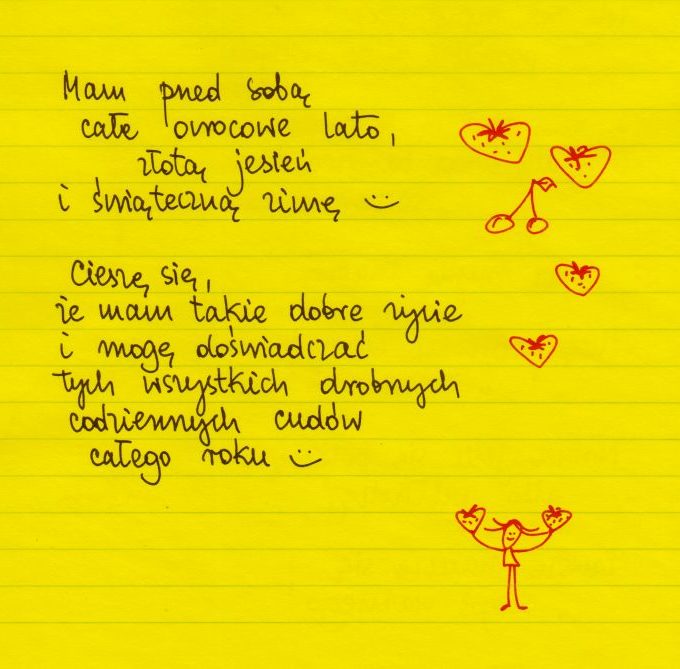 Mam przed sobą
całe owocowe lato,
złotą jesień
i świąteczną zimę :)
Cieszę się,
że mam takie dobre życie
i mogę doświadczać
tych wszystkich drobnych
codziennych cudów
całego roku :)